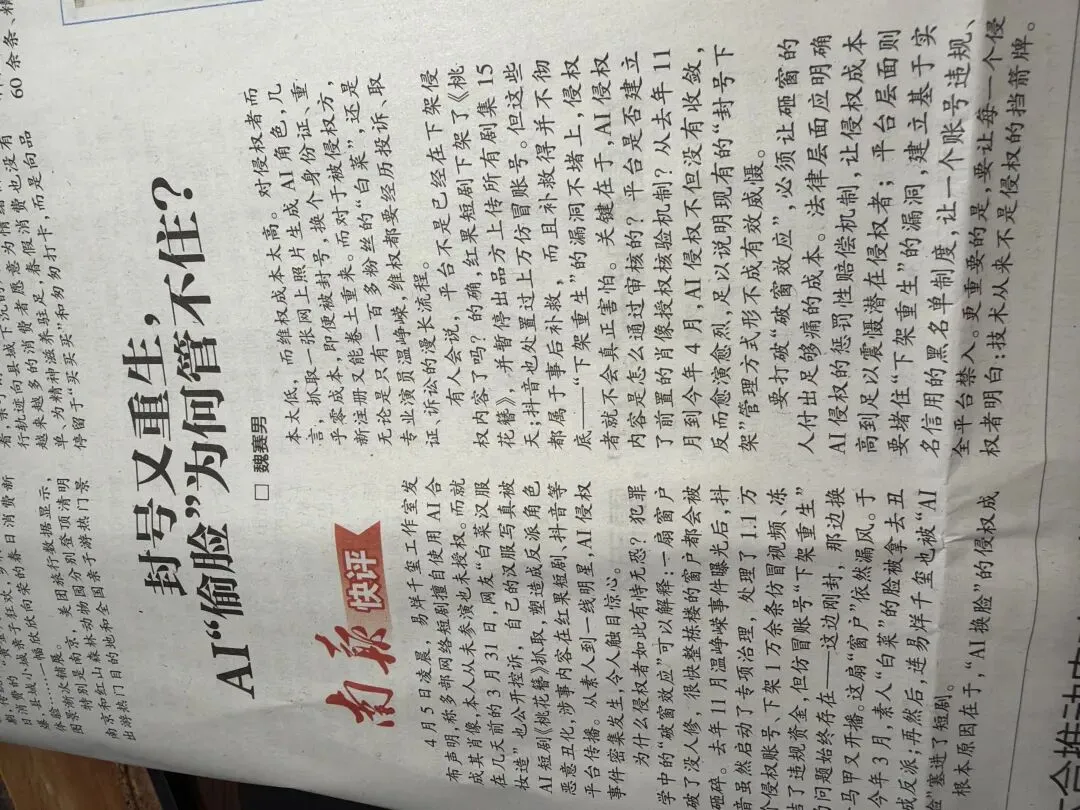 封号又重生，
AI“偷脸”为何管不住？
□ 魏赛男
南报
快评
4月5日凌晨，易烊千玺工作室发
布声明，称多部网络短剧擅自使用AI合
成其肖像，本人从未参演也未授权。而就
在几天前的3月31日，网友“白菜汉服
妆造”也公开控诉，自己的汉服写真被
AI短剧《桃花簪》抓取，塑造成反派角色
恶意丑化，涉事内容在红果短剧、抖音等
平台传播。从素人到一线明星，AI侵权
事件密集发生，令人触目惊心。
为什么侵权者如此有恃无恐？犯罪
学中的“破窗效应”可以解释：一扇窗户
破了没人修，很快整栋楼的窗户都会被
砸碎。去年11月温峥嵘事件曝光后，抖
音虽然启动了专项治理，处理了1.1万
个侵权账号、下架1万余条仿冒视频、冻
结了违规资金，但仿冒账号“下架重生”
的问题始终存在——这边刚封，那边换
马甲又开播。这扇“窗户”依然漏风。于
今年3月，素人“白菜”的脸被拿去丑
反派；再然后，连易烊千玺也被“AI
”塞进了短剧。
根本原因在于，“AI换脸”的侵权成
本太低，而维权成本太高。对侵权者而
言，抓取一张网上照片生成AI角色，几
乎零成本，即便被封号，换个身份证、重
新注册又能卷土重来。而对于被侵权方，
无论是只有一百多粉丝的“白菜”，还是
专业演员温峥嵘，维权都要经历投诉、取
证、诉讼的漫长流程。
有人会说，平台不是已经在下架侵
权内容了吗？的确，红果短剧下架了《桃
花簪》，并暂停出品方上传所有剧集15
天；抖音也处置过上万仿冒账号。但这些
都属于事后补救，而且补救得并不彻
底——“下架重生”的漏洞不堵上，侵权
者就不会真正害怕。关键在于，AI侵权
内容是怎么通过审核的？平台是否建立
了前置的肖像授权核验机制？从去年11
月到今年4月，AI侵权不但没有收敛，
反而愈演愈烈，足以说明现有的“封号下
架”管理方式形不成有效威慑。
要打破“破窗效应”，必须让砸窗的
人付出足够痛的成本。法律层面应明确
AI侵权的惩罚性赔偿机制，让侵权成本
高到足以震慑潜在侵权者；平台层面则
要堵住“下架重生”的漏洞，建立基于实
名信用的黑名单制度，让一个账号违规、
全平台禁入。更重要的是，要让每一个侵
权者明白：技术从来不是侵权的挡箭牌。
日消费的
县城小城
一幅欣欣向荣的春日消费新
图景渐次铺展。美团旅行数据显示，
特别是南京，
南京和红山森林动物园分别登顶清明
出游热门目的地和全国亲子游热门景
行轨迹向县城下沉的
越来越多的消费者愿意为情绪
单、为精神滋养驻足，春假消费也没有
停留于“买买买”和匆匆打卡，而是向品
60余条、精